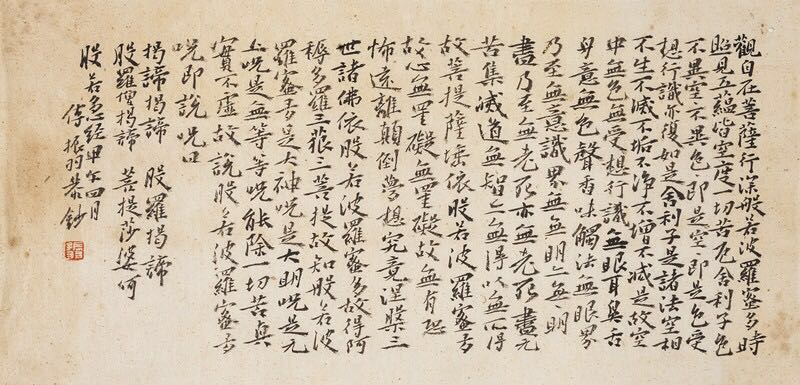 觀自在菩薩行深般若波羅蜜多時
照見五蘊皆空度一切苦厄舍利子色
不異空不異色即是空即是色受
想行識亦復如是舍利子是諸法空相
不生不滅不垢不淨不增不減是故空
中無色無受想行識無眼耳鼻舌
身意無色聲香味觸法無眼界
乃至無意識界無無明亦無明
盡乃至無老死亦無老死盡无
苦集滅道無智亦無得以無所得
故菩提薩埵依般若波羅蜜多
故心無罣礙無罣礙故無有恐
怖遠離顛倒夢想究竟涅槃三
世諸佛依般若波羅蜜多故得阿
耨多羅三藐三菩提故知般若波
羅蜜多是大神咒是大明咒是无
上咒是無等等咒能除一切苦真
實不虛故說般若波羅蜜多
咒即說咒曰
揭諦揭諦 般羅揭諦
般羅僧揭諦 菩提莎婆訶
般若多心經甲午四月
振羽恭鈔